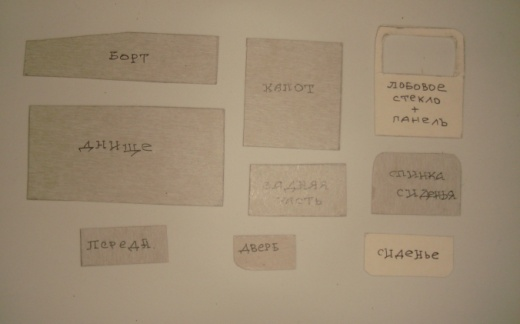 БОРТ
КАПОТ
ЛОБОВОЕ
СТЕКЛО
+
ПАНЕЛЬ
ДНИЩЕ
ЗАДНЯЯ
ЧАСТЬ
СПИНКА
СИДЕНЬЯ
ПЕРЕДЙ
ДВЕРЬ
СИДЕНЬЕ